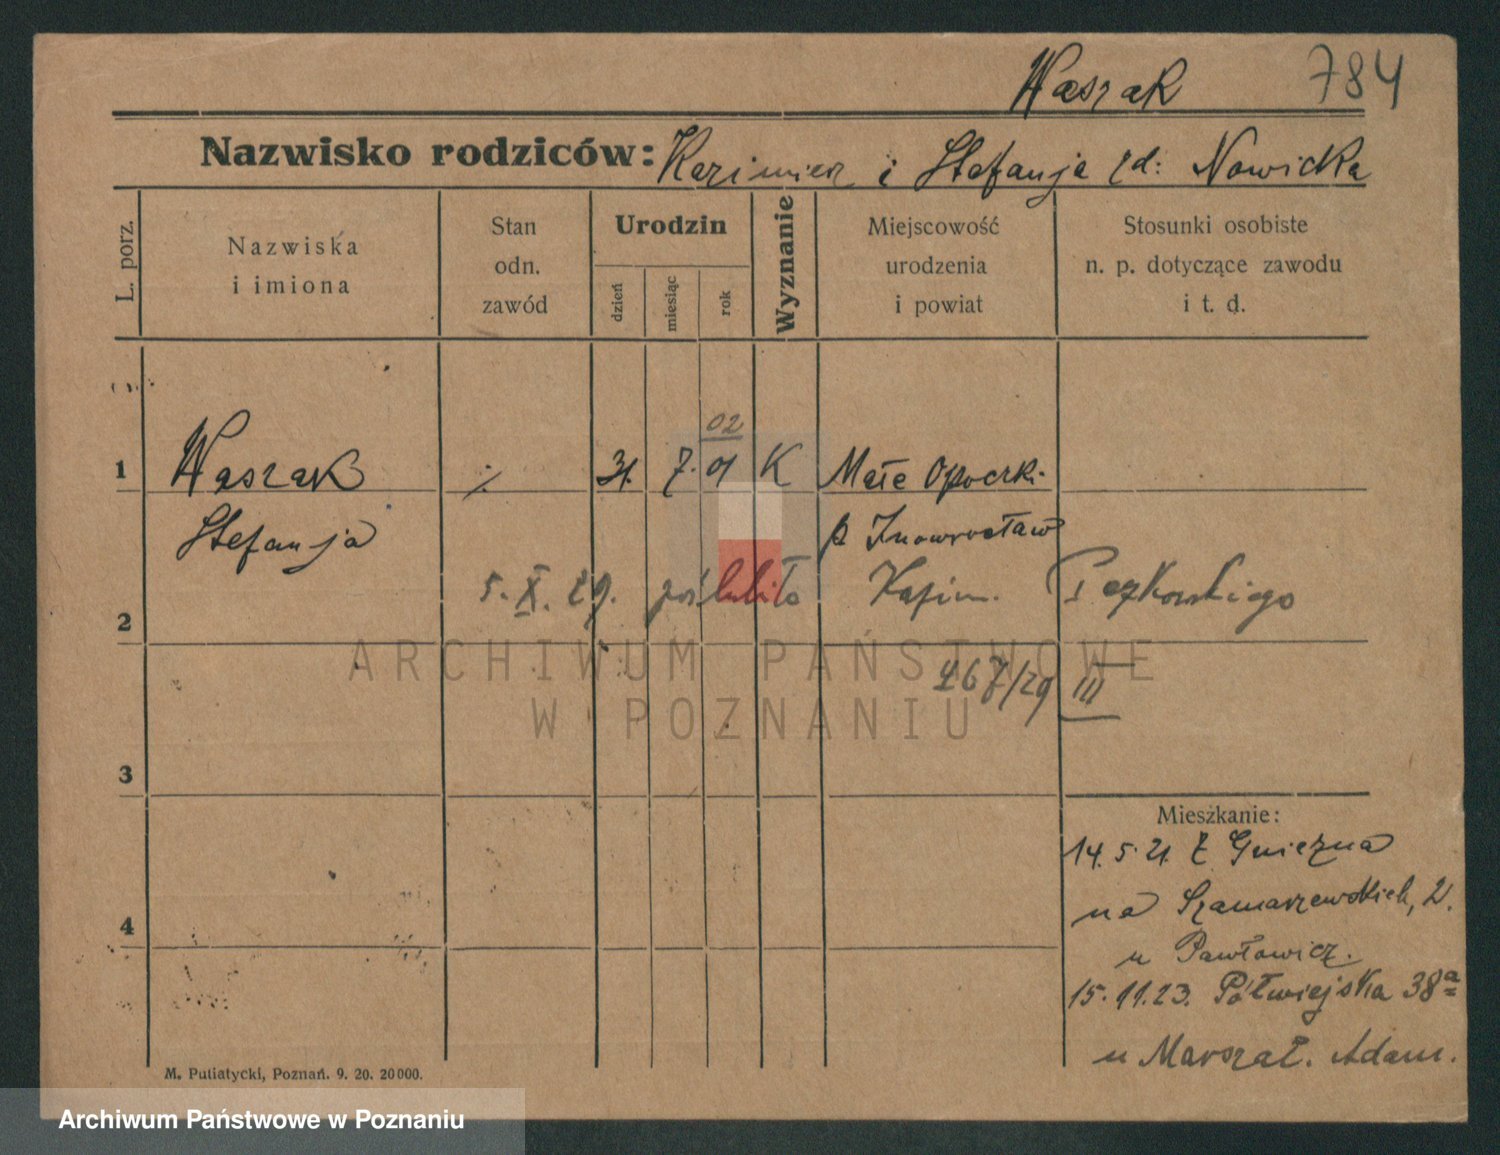 Waszak 784
Nazwisko rodziców: Kazimierz i Stefanja zd: Nowicka
L. porz.
Nazwiska
i imiona
Stan
odn.
zawód
Urodzin
dzień
miesiąc
rok
Wyznanie
Miejscowość
urodzenia
i powiat
Stosunki osobiste
n. p. dotyczące zawodu
i t. d.
02
1 Waszak ./. 31. 7. 01 K Małe Opoczki
Stefanja p Inowrocław
2 5. X. 29. poślubiła Kazim. Peczkowskiego
267/29 III
ARCHIWUM PAŃSTWOWE
W POZNANIU
3
Mieszkanie:
14. 5. 21. z Gniezna
4 na Szamarzewskich, 2.
u Pawłowicz.
15. 11. 23. Półwiejska 38a
u Marszał. Adam.
M. Putiatycki, Poznań. 9. 20. 20000.
Archiwum Państwowe w Poznaniu